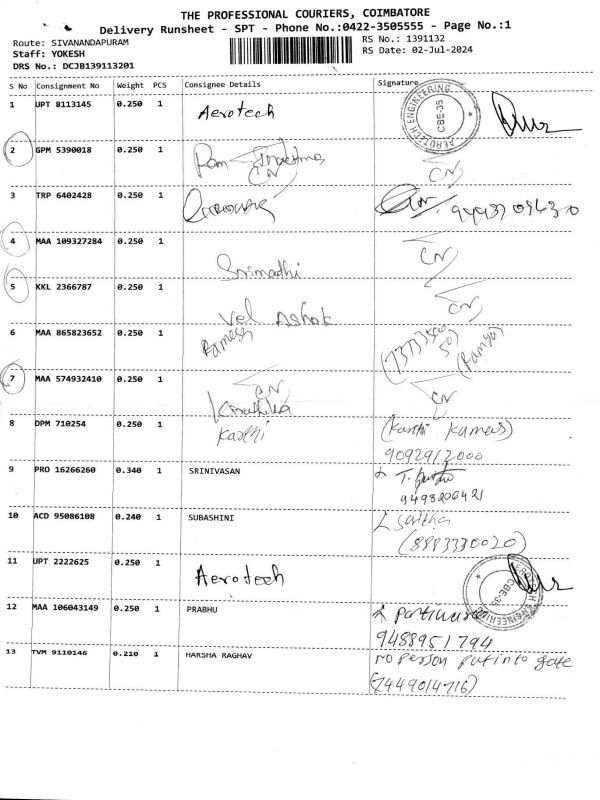 THE PROFESSIONAL COURIERS, COIMBATORE
Delivery Runsheet - SPT - Phone No.:0422-3505555 - Page No.:1
Route: SIVANANDAPURAM RS No.: 1391132
Staff: YOKESH RS Date: 02-Jul-2024
DRS No.: DCJB139113201
S No Consignment No Weight PCS Consignee Details Signature
1 UPT 8113145 0.250 1 Aerotech AEROTECH ENGINEERING CBE-35
2 GPM 5390018 0.250 1 Ram CN CN
3 TRP 6402428 0.250 1
4 MAA 109327284 0.250 1 Srimadhi CN
5 KKL 2366787 0.250 1 Vel Ashok CN
6 MAA 865823652 0.250 1 Ramesh (Ramya)
7 MAA 574932410 0.250 1 CN CN
8 DPM 710254 0.250 1 Karthi (Karthi Kumar)
9092912000
9 PRO 16266260 0.340 1 SRINIVASAN
9498206421
10 ACD 95086108 0.240 1 SUBASHINI
(8983330020)
11 UPT 2222625 0.250 1 Aerotech AEROTECH ENGINEERING CBE-35
12 MAA 106043149 0.250 1 PRABHU
9488951794
13 TVM 9110146 0.210 1 HARSHA RAGHAV no person put into gate
(7449014716)